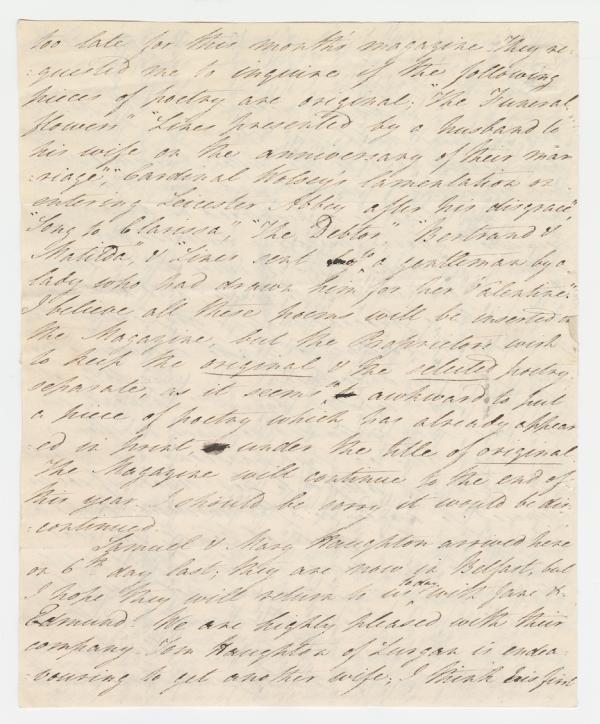 too late for this month's magazine. They re-
-quested me to inquire if the following
pieces of poetry are original; "The Funeral
flowers" "Lines presented by a husband to
his wife on the anniversary of their mar
-riage", "Cardinal Wolsey's lamentation on
entering Leicester Abbey after his disgrace",
"Song to Clarissa", "The Debtor", "Bertrand &
Matilda", & "Lines sent to a gentleman by a
lady who had drawn him for her Valentine".
I believe all these poems will be inserted in
the Magazine, but the Proprietors wish
to keep the original & the selected poetry
separate, as it seems awkward to put
a piece of poetry which has already appear
-ed in print, under the title of original
The Magazine will continue to the end of
this year. I should be sorry it would be dis
-continued
Samuel & Mary Haughton arrived here
on 6th day last; they are now in Belfast, but
I hope they will return to us today with Jane &
Edmund. We are highly pleased with their
company. Tom Haughton of Lurgan is endea
-vouring to get another wife; I think his first